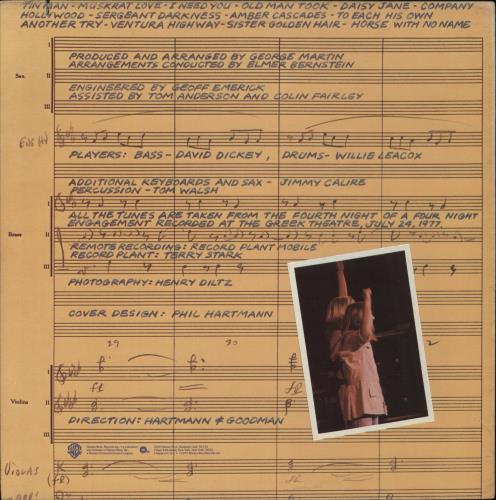 TIN MAN - MUSKRAT LOVE - I NEED YOU - OLD MAN TOOK - DAISY JANE - COMPANY
HOLLYWOOD - SERGEANT DARKNESS - AMBER CASCADES - TO EACH HIS OWN
ANOTHER TRY - VENTURA HIGHWAY - SISTER GOLDEN HAIR - HORSE WITH NO NAME
I
PRODUCED AND ARRANGED BY GEORGE MARTIN
ARRANGEMENTS CONDUCTED BY ELMER BERNSTEIN
Sax.
II
ENGINEERED BY GEOFF EMERICK
ASSISTED BY TOM ANDERSON AND COLIN FAIRLEY
III
ENG HN
PLAYERS: BASS - DAVID DICKEY, DRUMS - WILLIE LEACOX
ADDITIONAL KEYBOARDS AND SAX - JIMMY CALIRE
PERCUSSION - TOM WALSH
I
ALL THE TUNES ARE TAKEN FROM THE FOURTH NIGHT OF A FOUR NIGHT
ENGAGEMENT RECORDED AT THE GREEK THEATRE, JULY 24, 1977.
Brass
II
REMOTE RECORDING: RECORD PLANT MOBILE
RECORD PLANT: TERRY STARK
III
PHOTOGRAPHY: HENRY DILTZ
COVER DESIGN: PHIL HARTMANN
29
30
2
I
ff
ff
Violins
II
DIRECTION: HARTMANN & GOODMAN
III
VIOLAS